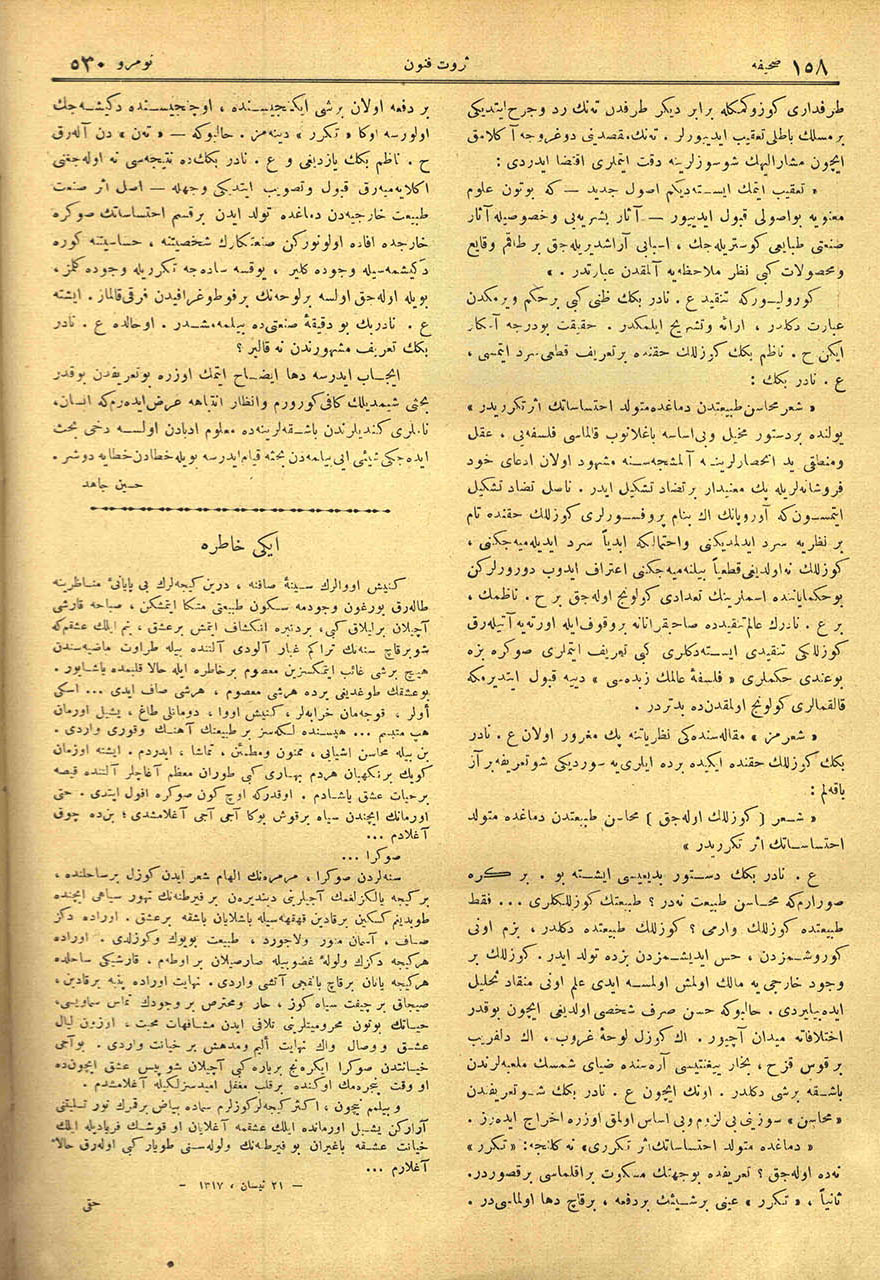 ١٥٨ صحیفه
ثروت فنون
نومرو ٥٣٠
طرفداری کوزوکمکله برابر دیکر طرفدن ته‌نك رد وجرح ایتدیکی
بر مسلك باطلی تعقیب ایدییورلر . ته‌نك مقصدینی دوغروجه آکلامق
ایچون مشارالیهك شو سوزلرینه دقت ایتملری اقتضا ایدردی :
« تعقیب ایتمك ایسته‌دیکم اصول جدید — که بوتون علوم
معنویه بواصولی قبول ایدییور — آثار بشریه‌یی وخصوصیله آثار
صنعتی طبایعی کوستریله‌جك ، اسبابی آراشدیریله‌جق بر طاقم وقایع
ومحصولات کبی نظر ملاحظه‌یه آلمقدن عبارتدر . »
کورولیورکه تنقید ع . نادر بکك ظنی کبی برحکم ویرمکدن
عبارت دکلدر ، ارائه وتشریح ایلمکدر . حقیقت بودرجه آشکار
ایکن ح . ناظم بکك کوزللك حقنده بر تعریف قطعی سرد ایتمسی ،
ع . نادر بکك :
« شعر محاسن طبیعتدن دماغده متولد احتساساتك اثر تکرریدر »
یولنده بردستور مخیل وبی‌اساسه باغلانوب قالماسی فلسفه‌یی ، عقل
ومنطقی ید انحصارلرینه آلمشجه‌سنه مشهود اولان ادعای خود
فروشانه‌لریله پك معتبدار برتضاد تشکیل ایدر . ناصل تضاد تشکیل
ایتمسون‌که آوروپانك اك بنام پروفسورلری کوزللك حقنده تام
بر نظریه سرد ایدلمدیکنی واحتمالکه ابدیاً سرد ایدیله‌میه‌جکنی ،
کوزللك نه‌اولدیغی قطعیاً بیلنه‌میه‌جکنی اعتراف ایدوب دورورلرکن
بوحکمایاننده اسملرینك تعدادی کولونج اوله‌جق بر ح . ناظمك ،
بر ع . نادرك عالم تنقیده صاحبقرانانه بروقوف ایله اورته‌یه آتیله‌رق
کوزللکی تنقیدی ایسته‌دکلری کبی تعریف ایتملری صوکره بزه
بوعندی حکملری « فلسفهٔ عالمك زبده‌سی » دییه قبول ایتدیرمکه
قالقمالری کولونج اولمقدن‌ده بدتردر .
« شعرمز » مقاله‌سنده‌کی نظریاتنه پك مغرور اولان ع . نادر
بکك کوزللك حقنده ایکیده برده ایلری‌یه سوردیکی شو تعریفه برآز
باقه‌لم :
« شعر ( کوزللك اوله‌جق ) محاسن طبیعتدن دماغده متولد
احتساساتك اثر تکرریدر »
ع . نادر بکك دستور بدیعیسی ایشته بو . بر کره
صورارم‌که محاسن طبیعت نه‌در ؟ طبیعتك کوزللکلری ... فقط
طبیعتده کوزللك وارمی ؟ کوزللك طبیعتده دکلدر ، بزم اونی
کوروشمزدن ، حس ایدیشمزدن بزده تولد ایدر. کوزللك بر
وجود خارجی‌یه مالك اولمش اولمسه ایدی علم اونی منقاد تحلیل
ایده‌بیلیردی . حالبوکه حسن صرف شخصی اولدیغی ایچون بوقدر
اختلافاته میدان آچیور. اك کوزل لوحهٔ غروب ، اك دلفریب
بر قوس قزح ، بخار ییغنتیسی آره‌سنده ضیای شمسك ملعبه‌لرندن
باشقه برشی دکلدر . اونك ایچون ع . نادر بکك شو تعریفندن
« محاسن » سوزینی بی‌لزوم وبی‌اساس اولمق اوزره اخراج ایده‌رز .
« دماغده متولد احتساساتك اثر تکرری » نه کلنجه: « تکرر »
نه‌ده اوله‌جق ؟ تعریفده بوجهتك مسکوت براقلماسی برقصوردر.
ثانیاً ، « تکرر » عینی برشیئك بردفعه ، برقاچ دها اولماسی‌در .
بر دفعه اولان برشی ایکنجیسنده ، اوچنجیسنده دکیشه‌جك
اولورسه اوکا « تکرر » دینه‌مز . حالبوکه — « ته‌ن » دن آله‌رق
ح . ناظم بکك یازدیغی و ع . نادر بکك‌ده نتیجه‌سی نه اوله‌جغنی
اکلایه‌میه‌رق قبول وتصویب ایتدیکی وجهله — اصل اثر صنعت
طبیعت خارجیه‌دن دماغده تولد ایدن برقسم احتساساتك صوکره
خارجده افاده اولونورکن صنعتکارك شخصیتنه ، حساسیتنه کوره
دکیشمه‌سیله وجوده کلیر ، یوقسه ساده‌جه تکرریله وجوده کلمز ،
بویله اوله‌جق اولسه برلوحه‌نك برفوطوغرافیدن فرقی قالماز. ایشته
ع . نادربك بو دقیقهٔ صنعتی‌ده بیلمه‌مشدر . اوحالده ع . نادر
بکك تعریف مشهورندن نه قالیر ؟
ایجاب ایدرسه دها ایضاح ایتمك اوزره بوتعریفدن بوقدر
بحثی شیمدیلك کافی کورورم وانظار انتباهه عرض ایده‌رم‌که انسان،
نامـلری کندیلرندن باشقه‌لرینه‌ده معلوم ادبادن اولسه دخی بحث
ایده‌جکی شیئی ایی بیلمه‌دن بحثه قیام ایدرسه بویله خطادن خطایه دوشر .
حسین جاهد
ایکی خاطره
کنیش اووالرك سینهٔ صافنه ، درین کیجه‌لرك بی پایانئ مناظرینه
طاله‌رق یورغون وجودمه سکون طبیعتی متکا ایتمشکن ، صباحه قارشی
آچیلان برایلاق کبی، بردنبره انکشاف ایتمش برعشق ، بنم ایلك عشقم‌که
شو برقاچ سنه‌نك تراکم غبار آلودی آلتنده بیله طراوت ماضیه‌سندن
هیچ برشی غائب ایتمکسزین معصوم برخاطره ایله حالا قلبمده یاشایور .
بوعشقك طوغدیغی یرده هرشی معصوم ، هرشی صاف ایدی ... اسکی
أولر ، قوجه‌مان خرابه‌لر ، کنیش اووا ، دومانلی طاغ ، یشیل اورمان
هپ متبسم ... هپسنده لکه‌سز بر طبیعتك آهنك وقوری واردی .
بن بیله محاسن اشیایی ، ممنون ومطمئن ، تماشا ، ایدردم . ایشته اوزمان
کویك برنکهبان هردم بهاری کبی طوران معظم آغاچلر آلتنده قیصه
برحیات عشق یاشادم . اوقدرکه اوچ کون صوکره افول ایتدی . حتی
اورمانك ایچندن سیاه برقوش بوکا آجی آجی آغلامشدی ؛ بن‌ده چوق
آغلادم ...
صوکرا ...
سنه‌لردن صوکرا ، مرمره‌نك الهام شعر ایدن کوزل برساحلنده ،
بر کیجه یالکزلغمك آجیلرینی دیندیره‌ن بر فیرطنه‌نك تهور سیاهی ایچنده
طویدیغم کسکین برقادین قهقهه‌سیله باشلایان باشقه برعشق . اوراده دکز
صاف ، آسمان منور ولاجورد ، طبیعت بویوك وکوزلدی . اوراده
هرکیجه دکزك ولولهٔ غضوبیله صارصیلان بر اوطه‌م ، قارشیکی ساحلده
هرکیجه یانان برقاچ بالقجی آتشی واردی . نهایت اوراده پنبه برقادین ،
صیجاق بر چیفت سیاه کوز ، حار ومحترص بر وجودك تماس سماویسی،
حیاتك بوتون محرومیتلرینی تلافی ایدن مشافهات محبت ، اوزون لیال
عشق و وصال واك نهایت ألیم ومدهش بر خیانت واردی . بوآجی
خیانتدن صوکرا ایکره‌نج بریاره کبی آچیلان شو پیس عشق ایچون‌ده
او وقت پنجره‌مك اوکنده برقلب مغفل امیدسزلکیله آغلامشدم .
و بیلمم نیچون ، اکثر کیجه‌لر کوزلرم سماده بیاض برقرك نور تسلیتنی
آرارکن یشیل اورمانده ایلك عشقمه آغلایان او قوشك فریادیله ایلك
خیانت عشقه باغیران بو فیرطنه‌نك ولوله‌سنی طویار کبی اوله‌رق حالا
آغلارم ...
— ٢١ نیسان ، ١٣١٧ —
حقی